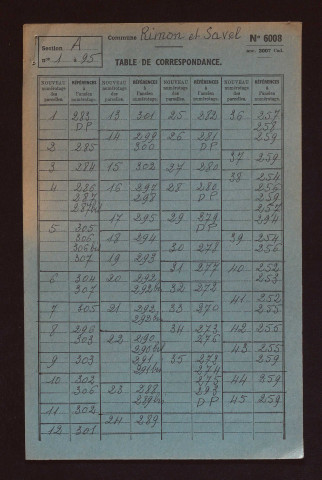 Section A
n° 1 à 95
Commune Rimon et Savel
N° 6008
TABLE DE CORRESPONDANCE.
NOUVEAU numérotage des parcelles. RÉFÉRENCES à l'ancien numérotage
NOUVEAU numérotage des parcelles. RÉFÉRENCES à l'ancien numérotage
NOUVEAU numérotage des parcelles. RÉFÉRENCES à l'ancien numérotage
NOUVEAU numérotage des parcelles. RÉFÉRENCES à l'ancien numérotage
1 283
DP
2 285
3 284
4 286
287
287bis
5 305
306
306bis
307
6 304
307
7 305
8 296
303
9 303
10 302
306
11 302
12 301
13 301
14 299
300
15 302
16 297
298
17 295
18 294
19 293
20 292
292bis
21 292
292bis
22 290
290bis
291
291bis
23 288
289bis
24 289
25 282
26 281
DP
27 280
28 280
DP
29 279
DP
30 278
31 277
32 272
33 270
34 273
276
35 273
274
275
293
DP
36 257
258
259
37 259
38 254
256
259
257
274
39 254
256
40 252
253
41 252
255
42 256
43 255
259
44 259
45 259